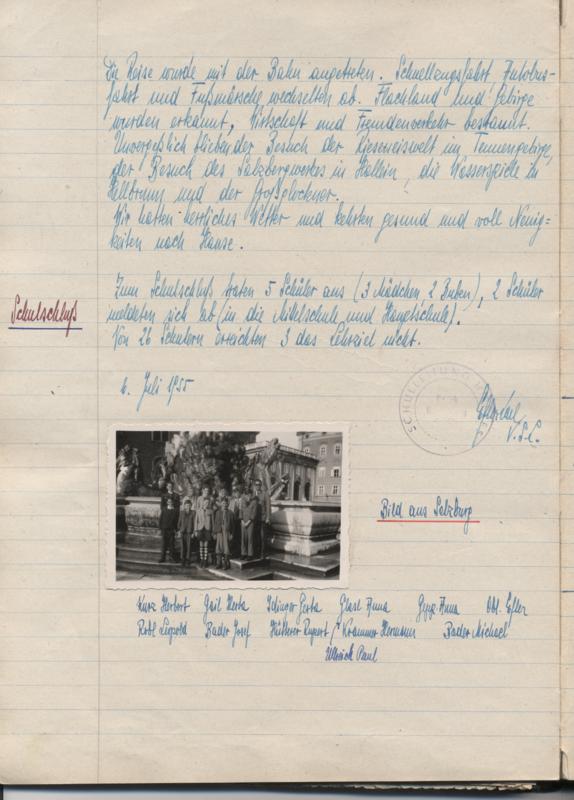 Die Reise wurde mit der Bahn angetreten. Autobus-
fahrt und Fußmärsche wechselten ab. Flachland und Gebirge
wurden erkannt, Wirtschaft und Fremdenverkehr bestaunt.
Unvergeßlich blieben der Besuch der Rieseneiswelt im Tennengebirge,
der Besuch des Salzbergwerkes in Hallein, die Wasserspiele in
Hellbrunn und der Großglockner.
Wir hatten herrliches Wetter und kehrten gesund und voll Neuig=
keiten nach Hause.
Schulschluß
Zum Schulschluß traten 5 Schüler aus (3 Mädchen 2 Buben), 2 Schüler
meldeten sich ab (in die und Hauptschule).
Von 26 Schülern erreichten 3 das Lehrziel nicht.
Juli 1955
SCHULLEITUNG
Bild aus Salzburg
Kurz Herbert Gail Herta Gerta Glasl Anna Anna
Leopold Bader Josef Rupert Krammer Hermann Bader Michael
Ulbrich Paul